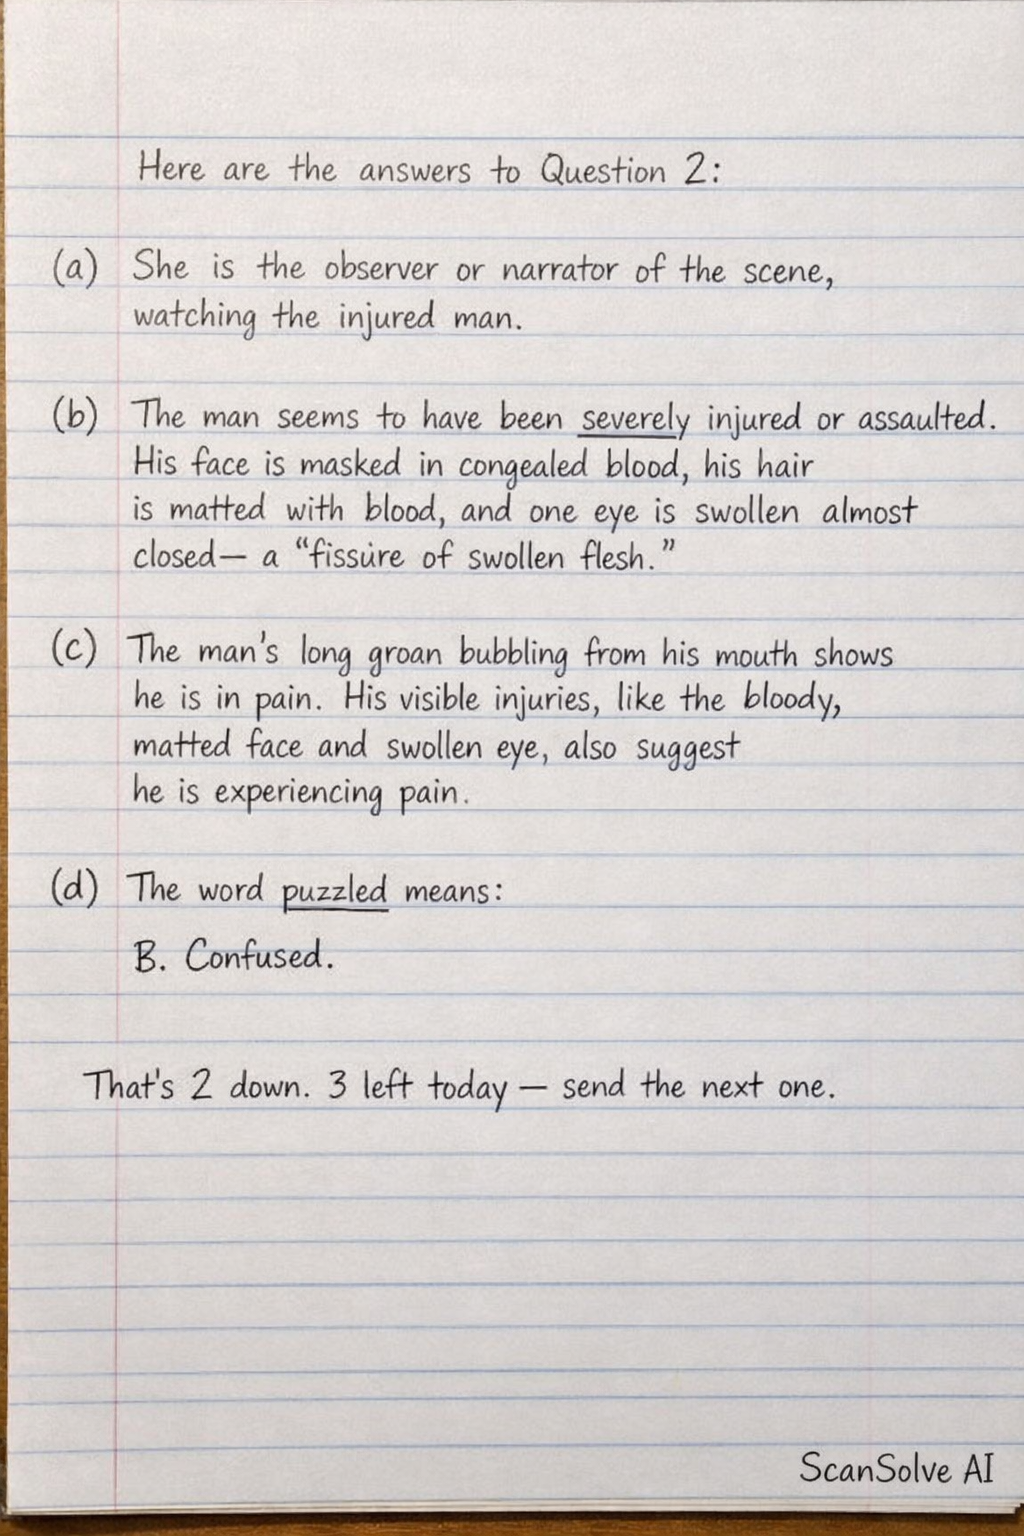 Here are the answers to Question 2:
(a) She is the observer or narrator of the scene,
watching the injured man.
(b) The man seems to have been severely injured or assaulted.
His face is masked in congealed blood, his hair
is matted with blood, and one eye is swollen almost
closed— a “fissure of swollen flesh.”
(c) The man's long groan bubbling from his mouth shows
he is in pain. His visible injuries, like the bloody,
matted face and swollen eye, also suggest
he is experiencing pain.
(d) The word puzzled means:
B. Confused.
That's 2 down. 3 left today — send the next one.
ScanSolve AI